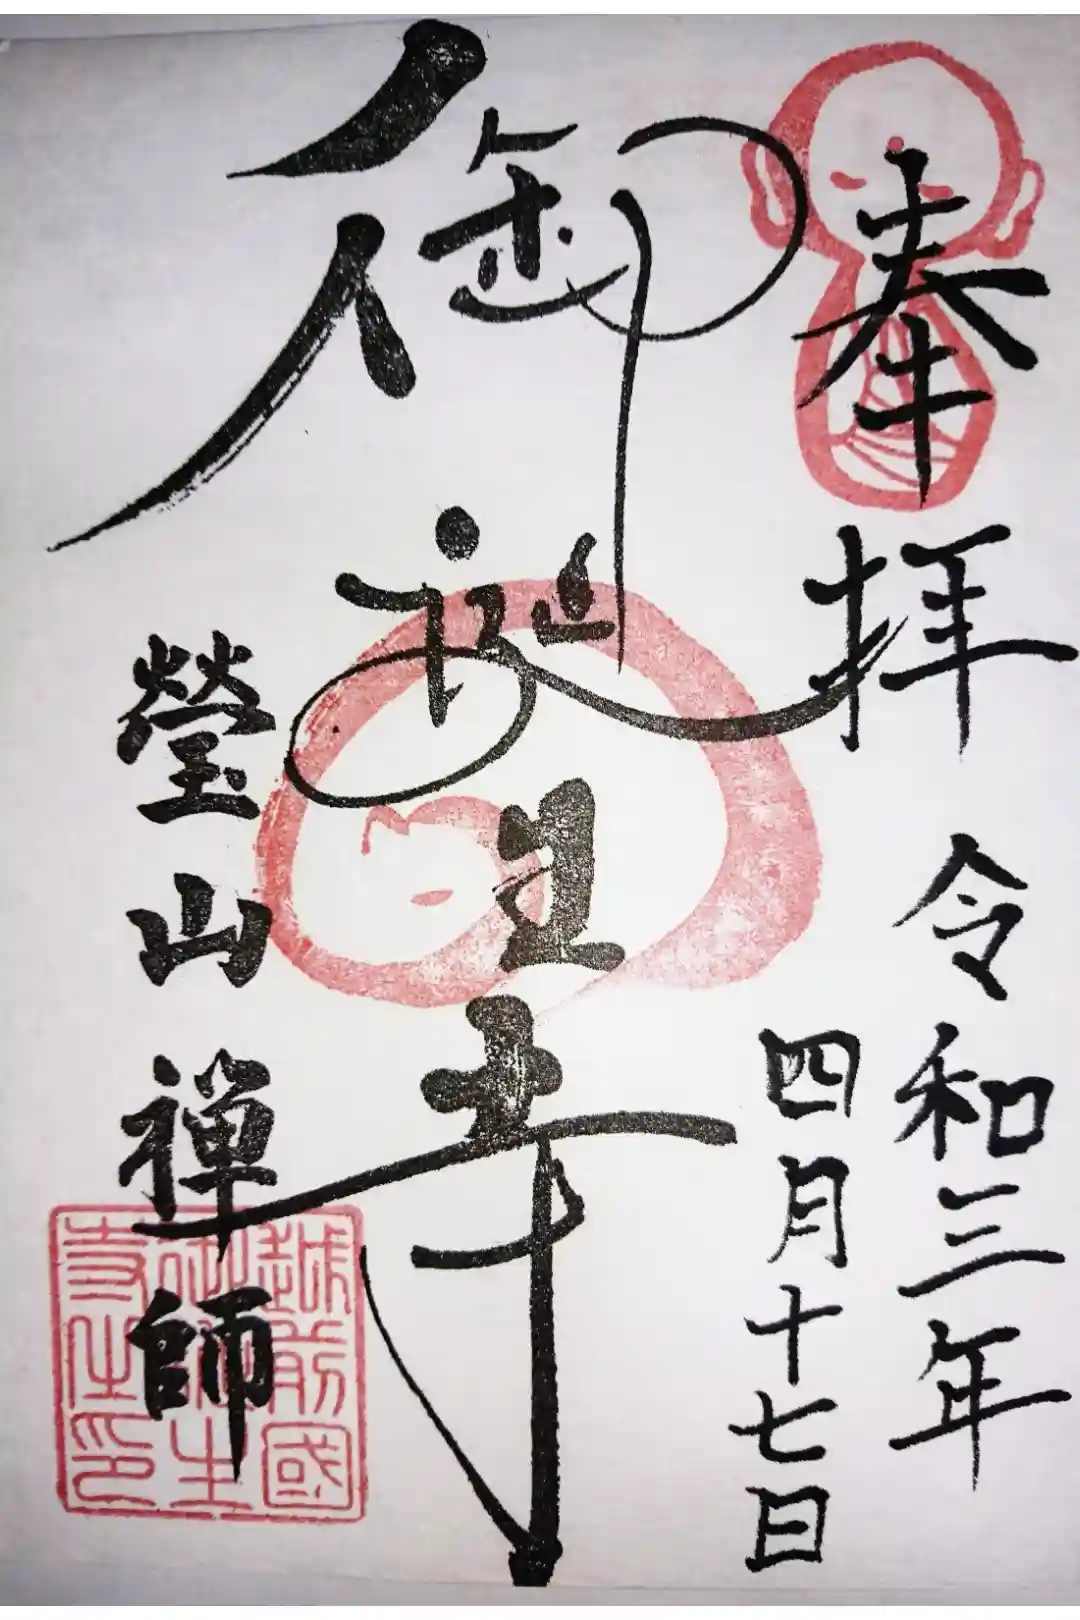 奉拝
令和三年
四月十七日
御誕生寺
瑩山禅師
越前國
御誕生
寺之印